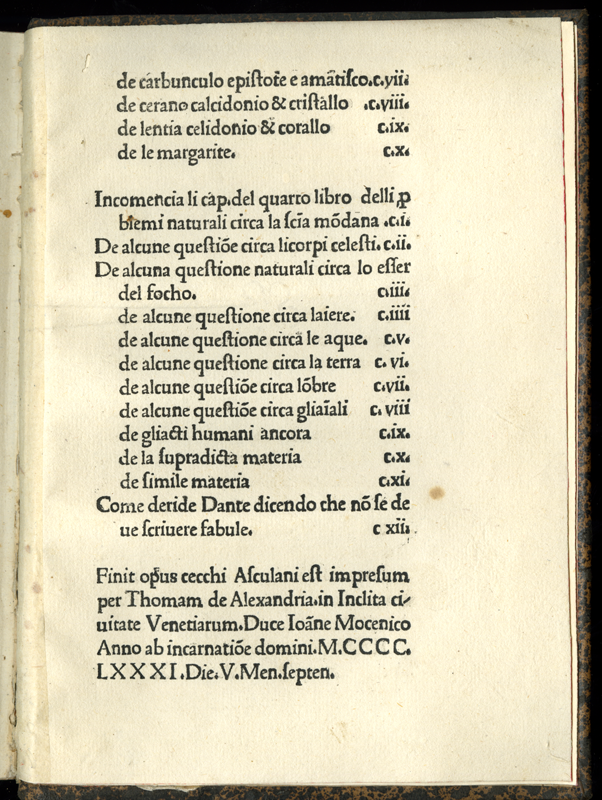 de carbunculo epistoƭe e amãtisco.c.vii.
de cerano calcidonio & cristallo .c.viii.
de lentia celidonio & corallo c.ix.
de le margarite. c.x.
Incomencia li cap.del quarto libro delli ꝓ
blemi naturali circa la scĩa mõdana .c.i.
De alcune questiõe circa licorpi celesti.c.ii.
De alcuna questione naturali circa lo esser
del focho. c.iii.
de alcune questione circa laiere. c.iiii
de alcune questione circa le aque. c.v.
de alcune questione circa la terra c. vi.
de alcune questiõe circa lõbre c.vii.
de alcune questiõe circa gliaĩali c. viii
de gliacti humani ancora c.ix.
de la supradicta materia c.x.
de simile materia c.xi.
Come deride Dante dicendo che nõ se de
ue scriuere fabule. c xii.
Finit opus cecchi Asculani est impresum
per Thomam de Alexandria.in Inclita ci/
uitate Venetiarum.Duce Ioãne Mocenico
Anno ab incarnatiõe domini.M.CCCC.
LXXXI.Die.V.Men.septen.